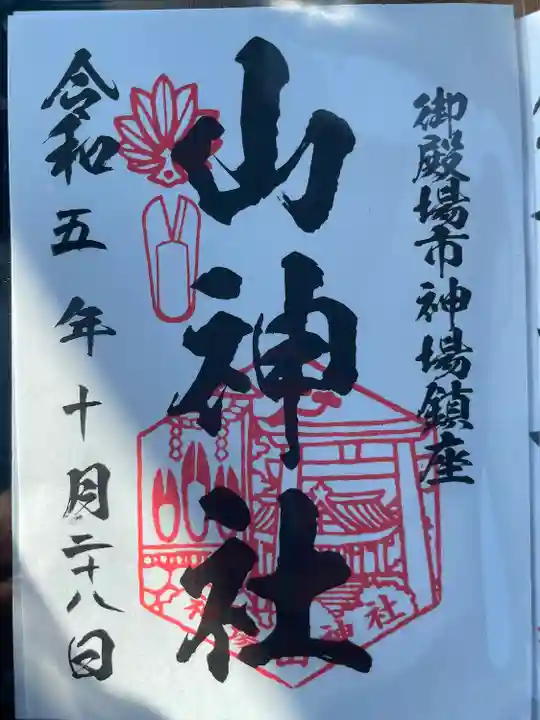 御殿場市神場鎮座
山神社
令和五年十月二十八日
神場山神社